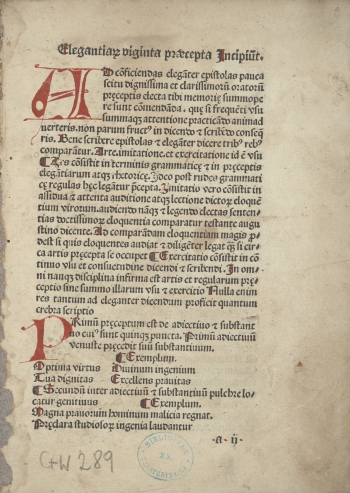 Elegantiaꝝ viginta pꝛæcepta Incipiūt.
AD cōficiendas elegāter epistolas pauca
scitu dignissima et clarissimoꝝ oratoꝝ
pꝛęceptis electa tibi memorię summope
re sunt cōmendāda. quę si frequēti vsu
summaqꝫ attentione practicādo animad
uerteris. non parum fructꝰ in dicendo ⁊ scribēdo conseq̄
ris. Bene scribere epistolas ⁊ elegāter dicere tribꝰ rebꝰ
comparātur. Arte. imitatione. et exercitatione id ē vsu
¶ Ars cōsistit in terminis grammaticę ⁊ in pꝛęceptis
elegātiarum atqꝫ rhetoricę. Ideo post rudes grammati
cę regulas hęc legātur p̄cepta. Imitatio vero cōsistit in
assidua ⁊ attenta auditione atqꝫ lectione doctoꝝ eloquē
tium viroꝝ. audiendo nāqꝫ ⁊ legendo electas senten
tias doctissimoꝝ eloquentia comparatur testante augu
stino dicente. Ad comparādam eloquentiam magis ꝓ
dest si quis eloquentes audiat ⁊ diligēter legat qꝫ si cir
ca artis pꝛęcepta se occupet ¶ Exercitatio cōsistit in cō
tinuo vsu et consuetudine dicendi ⁊ scribendi. In om
ni nanqꝫ disciplina infirma est artis et regularum pꝛę
ceptio sine summo illarum vsu ⁊ exercitio Nulla enim
res tantum ad eleganter dicendum proficit quantum
crebra scriptio
PRimū pꝛęceptum est de adiectiuo ⁊ substant
iuo cuiꝰ sunt quinqꝫ puncta. Primū adiectiuū
venuste pꝛęcedit suū substantiuum.
¶ Exemplum.
Optima virtus Diuinum ingenium
Tua dignitas Excellens prauitas
¶ Secundū inter adiectiuū ⁊ substantiuū pulchre lo-
catur genitiuus ¶ Exemplum.
Magna prauorum hominum malicia regnat.
Pꝛęclara studiosoꝝ ingenia laudantur
a ij
C+W 289
BIBLIOTH